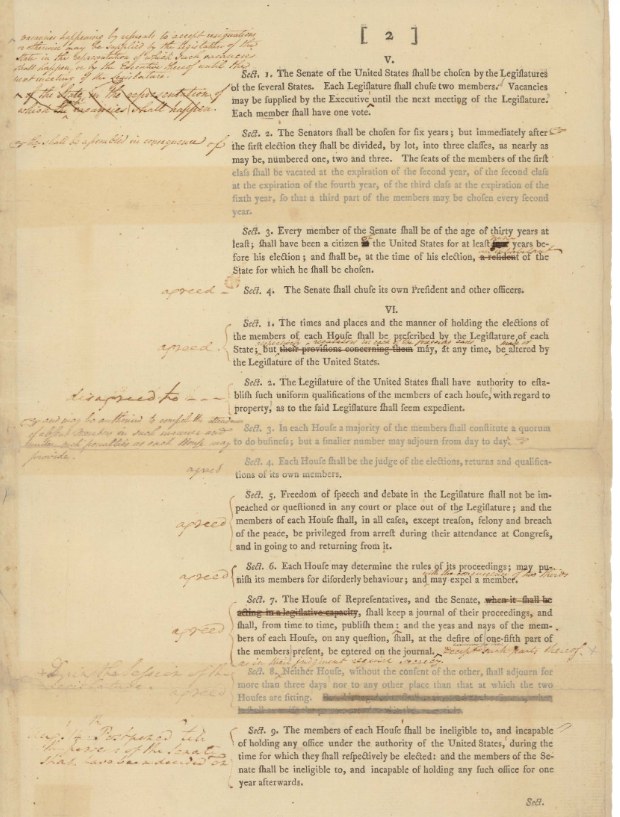 vacancies happening by refusals to accept resignations
or otherwise may be supplied by the Legislature of the
State in the representation of which such vacancies
shall happen, or by the Executive thereof until the
next meeting of the Legislature.
of the State in the representation of
which the vacancies shall happen.
[ 2 ]
V.
Sect. 1. The Senate of the United States ſhall be choſen by the Legiſlatures
of the ſeveral States. Each Legiſlature ſhall chuſe two members. Vacancies
may be ſupplied by the Executive until the next meeting of the Legiſlature.
Each member ſhall have one vote.
they shall be assembled in consequence of
Sect. 2. The Senators ſhall be choſen for ſix years; but immediately after
the firſt election they ſhall be divided, by lot, into three claſſes, as nearly as
may be, numbered one, two and three. The ſeats of the members of the firſt
claſs ſhall be vacated at the expiration of the ſecond year, of the ſecond claſs
at the expiration of the fourth year, of the third claſs at the expiration of the
ſixth year, ſo that a third part of the members may be choſen every ſecond
year.
Sect. 3. Every member of the Senate ſhall be of the age of thirty years at
leaſt; ſhall have been a citizen the United States for at leaſt years be-
fore his election; and ſhall be, at the time of his election, a reſident of the
State for which he ſhall be choſen.
agreed
Sect. 4. The Senate ſhall chuſe its own Preſident and other officers.
VI.
agreed
Sect. 1. The times and places and the manner of holding the elections of
the members of each Houſe ſhall be preſcribed by the Legiſlature of each
State; but their proviſions concerning them may, at any time, be altered by
the Legiſlature of the United States.
disagreed to
Sect. 2. The Legiſlature of the United States ſhall have authority to eſta-
bliſh ſuch uniform qualifications of the members of each houſe, with regard to
property, as to the ſaid Legiſlature ſhall ſeem expedient.
and may be authorised to compel the attendance
of absent members in such manner and
under such penalties as each House may
provide.
Sect. 3. In each Houſe a majority of the members ſhall conſtitute a quorum
to do buſineſs; but a ſmaller number may adjourn from day to day.
agreed
Sect. 4. Each Houſe ſhall be the judge of the elections, returns and qualifica-
tions of its own members.
agreed
Sect. 5. Freedom of ſpeech and debate in the Legiſlature ſhall not be im-
peached or queſtioned in any court or place out of the Legiſlature; and the
members of each Houſe ſhall, in all caſes, except treaſon, felony and breach
of the peace, be privileged from arreſt during their attendance at Congreſs,
and in going to and returning from it.
agreed
Sect. 6. Each Houſe may determine the rules of its proceedings; may pu-
niſh its members for diſorderly behaviour; and may expel a member.
agreed
Sect. 7. The Houſe of Repreſentatives, and the Senate, when it ſhall be
acting in a legiſlative capacity, ſhall keep a journal of their proceedings, and
ſhall, from time to time, publiſh them: and the yeas and nays of the mem-
bers of each Houſe, on any queſtion, ſhall, at the deſire of one-fifth part of
the members preſent, be entered on the journal. except such parts thereof
as in their judgment require secrecy
During the Session of the
Legislature
agreed
Sect. 8. Neither Houſe, without the conſent of the other, ſhall adjourn for
more than three days nor to any other place than that at which the two
Houſes are ſitting.
Postponed till
the powers of the Senate
shall have been decided on
Sect. 9. The members of each Houſe ſhall be ineligible to, and incapable
of holding any office under the authority of the United States, during the
time for which they ſhall reſpectively be elected: and the members of the Se-
nate ſhall be ineligible to, and incapable of holding any ſuch office for one
year afterwards.
Sect.